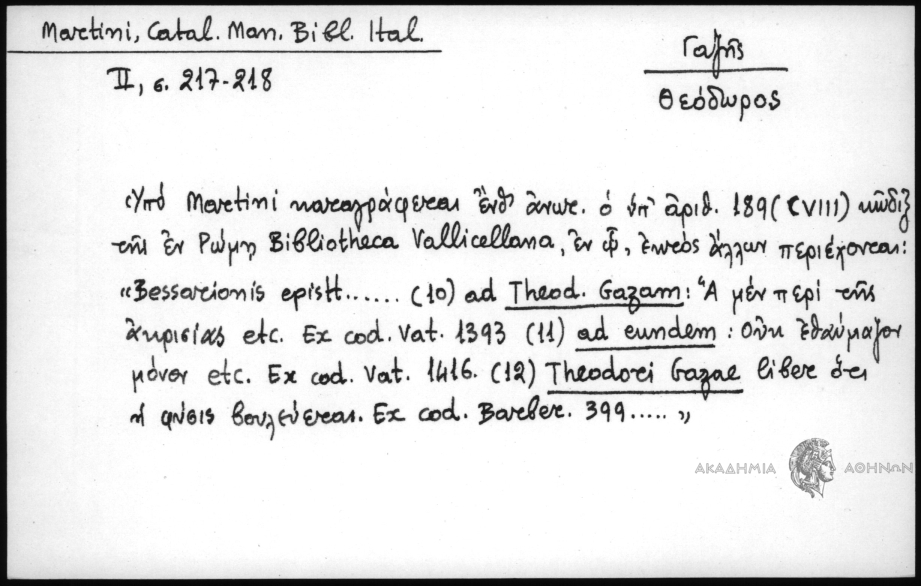 Martini, Catal. Man. Bibl. Ital.
II, σ. 217-218
Γαζῆς
Θεόδωρος
Ὑπό Martini καταγράφεται ἔνθ' ἄνωτ. ὁ ὑπ' ἀριθ. 189 (CVIII) κῶδιξ
τῆς ἐν Ρώμῃ Bibliotheca Vallicellana, ἐν ᾧ, ἐκτός ἄλλων περιέχονται:
«Bessarionis epistt...... (10) ad Theod. Gazam: Ἅ μέν περί τῆς
ἀκρισίας etc. Ex cod. Vat. 1393 (11) ad eundem: Οὐκ ἐθαύμαζον
μόνον etc. Ex cod. Vat. 1416. (12) Theodori Gazae liber ὅτι
ἡ φύσις βουλεύεται. Ex cod. Barber. 399..... »
ΑΚΑΔΗΜΙΑ ΑΘΗΝΩΝ